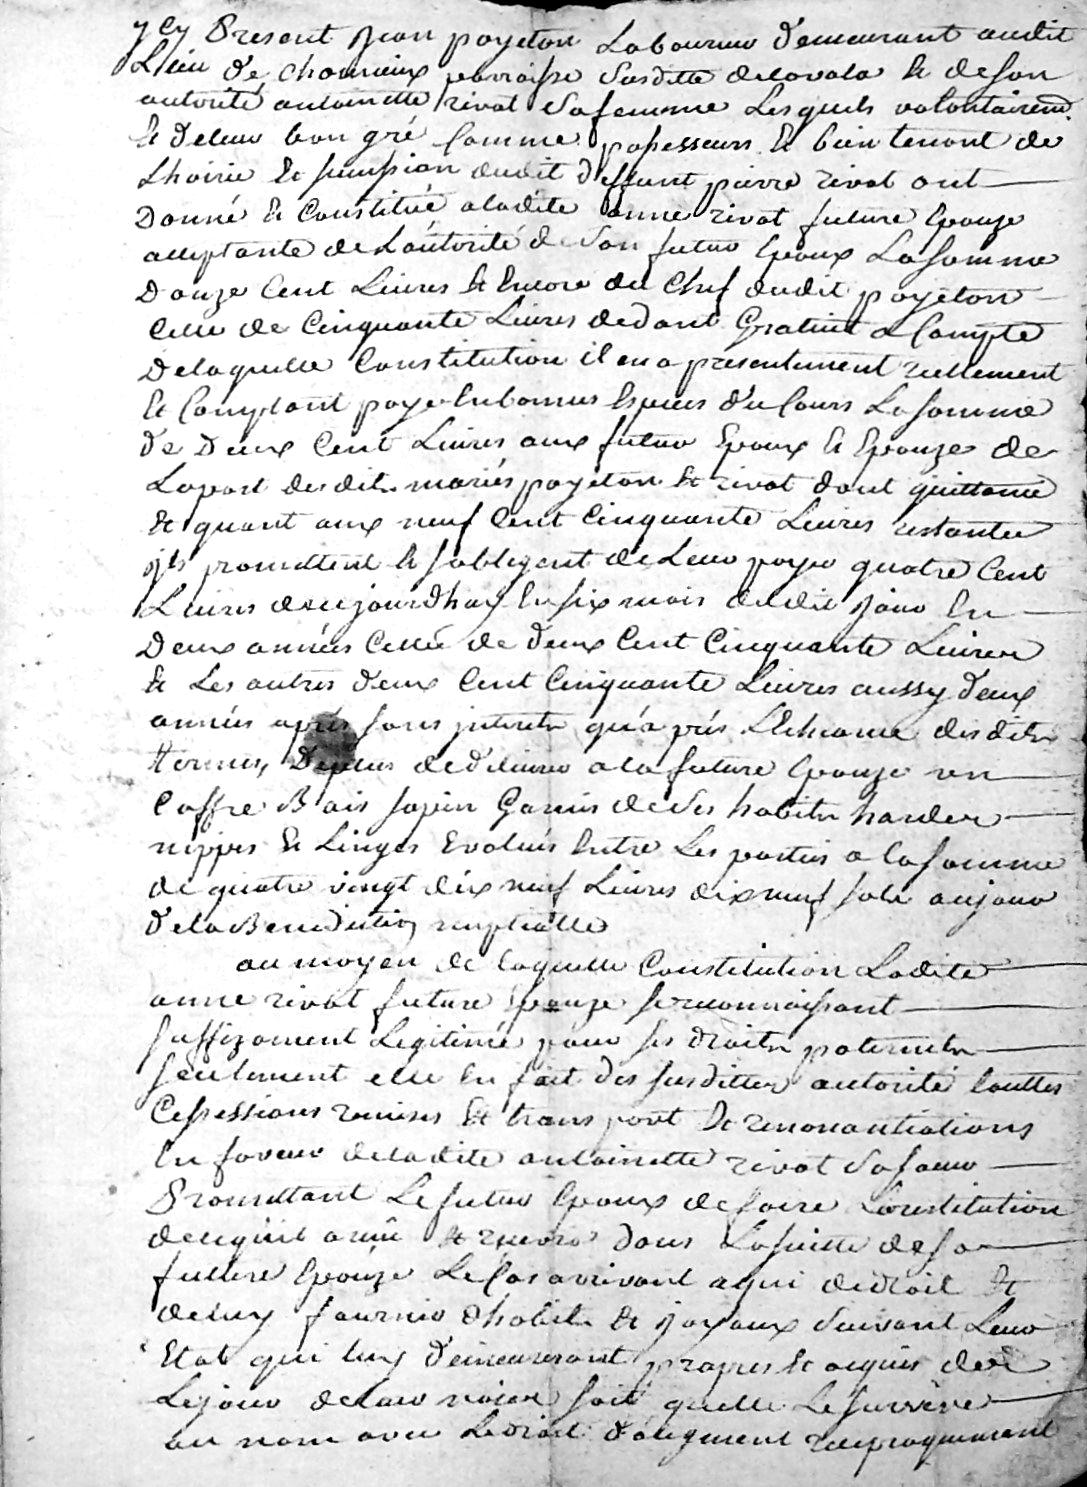 ycy Present Jean payeton Laboureur demeurant audit
Lieu de chomieux parroisse susditte delavala & deson
autorité antoinette rivat safemme Lesquels volontairem.
& deleur bon gré Comme possesseurs & bien tenant de
Lhoirie & sucession dudit deffunt pierre rivat ont
Donné & Constitué aladite anne rivat future Epouze
acceptante de Lautorité de son futur Epoux Lasomme
Douze Cent Livres & Encore du Chef dudit payeton
Celle de Cinquante Livres dedont Gratuit a Compte
Delaquelle Constitution il en a presentement reellement
& Comptant payé Enbonnes Espèces du Cours Lasomme
De Deux Cent Livres aux futur Epoux & Epouze de
Lapart desdits mariés payeton & rivat dont quittance
& quant aux neuf Cent Cinquante Livres restantes
jls promettent & sobligent de Leur payer quatre Cent
Livres decejourdhuy En six mois dudit jour En
Deux années Celle de deux Cent Cinquante Livres
& Les autres deux Cent Cinquante Livres aussy deux
années après sans jnterets qu'a près LEcheance desdits
termes, Deplus dedelivrer a la future Epouze un
Coffre Bois sapin Garnis de ses habits hardes
nippes & Linges Evalués Entre Les parties a lasomme
de quatre vingt dix neuf Livres dix neuf sols aujour
delaBenediction nuptialle
au moyen de laquelle Constitution Ladite
anne rivat future Epouze sereconnoissant
suffizament Legitimé pour ses droits paternels
seulement elle En fait des susdittes autorité touttes
Cessessions remises & transport & renonantiations
En faveur deladite antoinette rivat sasoeur
Promettant Lefutur Epoux defaire Constitution
decequil a reçu & recevra dans Lasuitte desa
future Epouze LeCas arrivant aqui dedroit &
deluy fournir dhabits & joyaux suivant Leur
Etat qui luy demeureront propres & acquis dès
Lejour deleur noces soit quelle Le survive
ou non avec Ledroit d'augment reciproquement